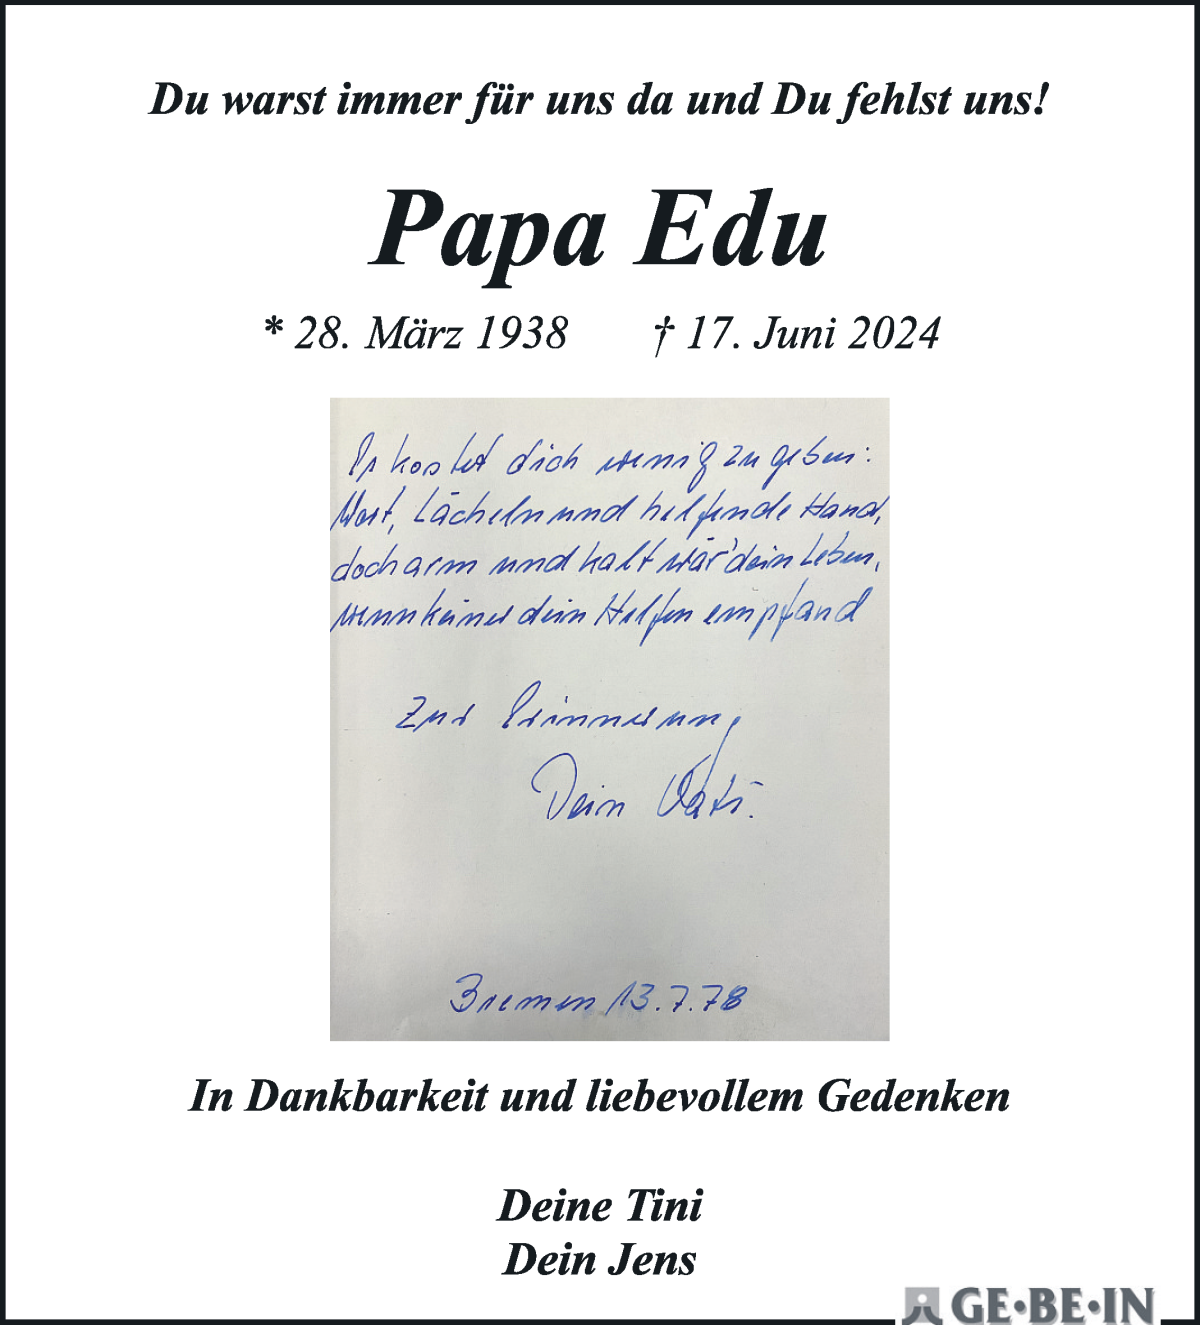 Du warst immer für uns da und Du fehlst uns!
Papa Edu
* 28. März 1938 † 17. Juni 2024
Es kostet dich wenig zu geben:
Wort, Lächeln und helfende Hand,
doch arm und kalt wär' dein Leben,
wenn keiner dein Helfen empfand
Zur Erinnerung
Dein Vati.
Bremen 13.7.78
In Dankbarkeit und liebevollem Gedenken
Deine Tini
Dein Jens
GE·BE·IN